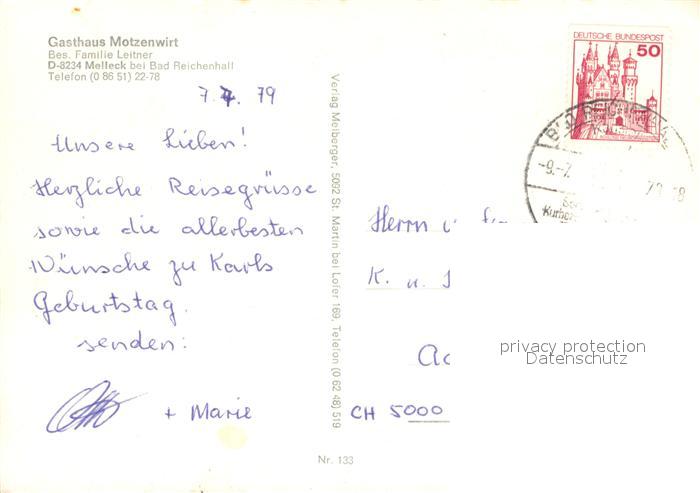 Gasthaus Motzenwirt
Bes. Familie Leitner
D-8234 Melleck bei Bad Reichenhall
Telefon (0 86 51) 22-78
7. 7. 79
Unsere Lieben!
Herzliche Reisegrüsse
sowie die allerbesten
Wünsche zu Karls
Geburtstag.
senden:
+ Marie
Verlag Melberger, 5092 St. Martin bei Lofer 169, Telefon (0 62 48) 519
Nr. 133
DEUTSCHE BUNDESPOST
50
-9.-7.
Herrn u
K. u.
CH 5000
privacy protection
Datenschutz